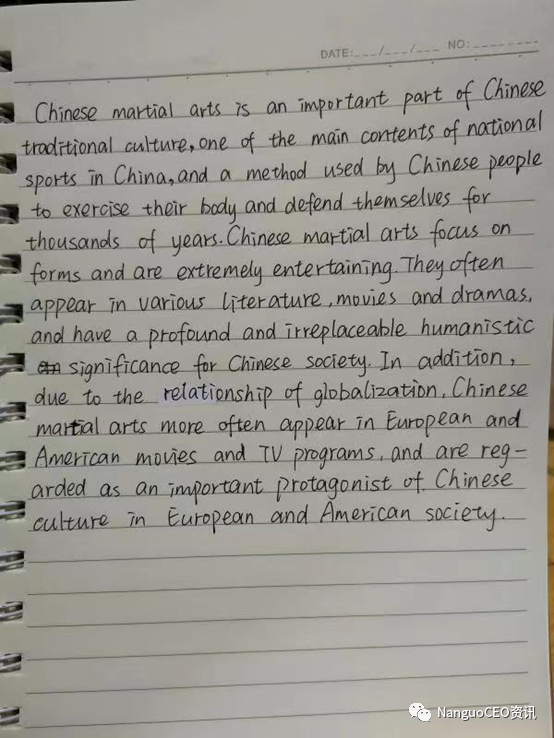 DATE:___/___/___ NO:________
Chinese martial arts is an important part of Chinese
traditional culture, one of the main contents of national
sports in China, and a method used by Chinese people
to exercise their body and defend themselves for
thousands of years. Chinese martial arts focus on
forms and are extremely entertaining. They often
appear in various literature, movies and dramas,
and have a profound and irreplaceable humanistic
significance for Chinese society. In addition,
due to the relationship of globalization, Chinese
martial arts more often appear in European and
American movies and TV programs, and are reg-
arded as an important protagonist of Chinese
culture in European and American society.
NanguoCEO资讯